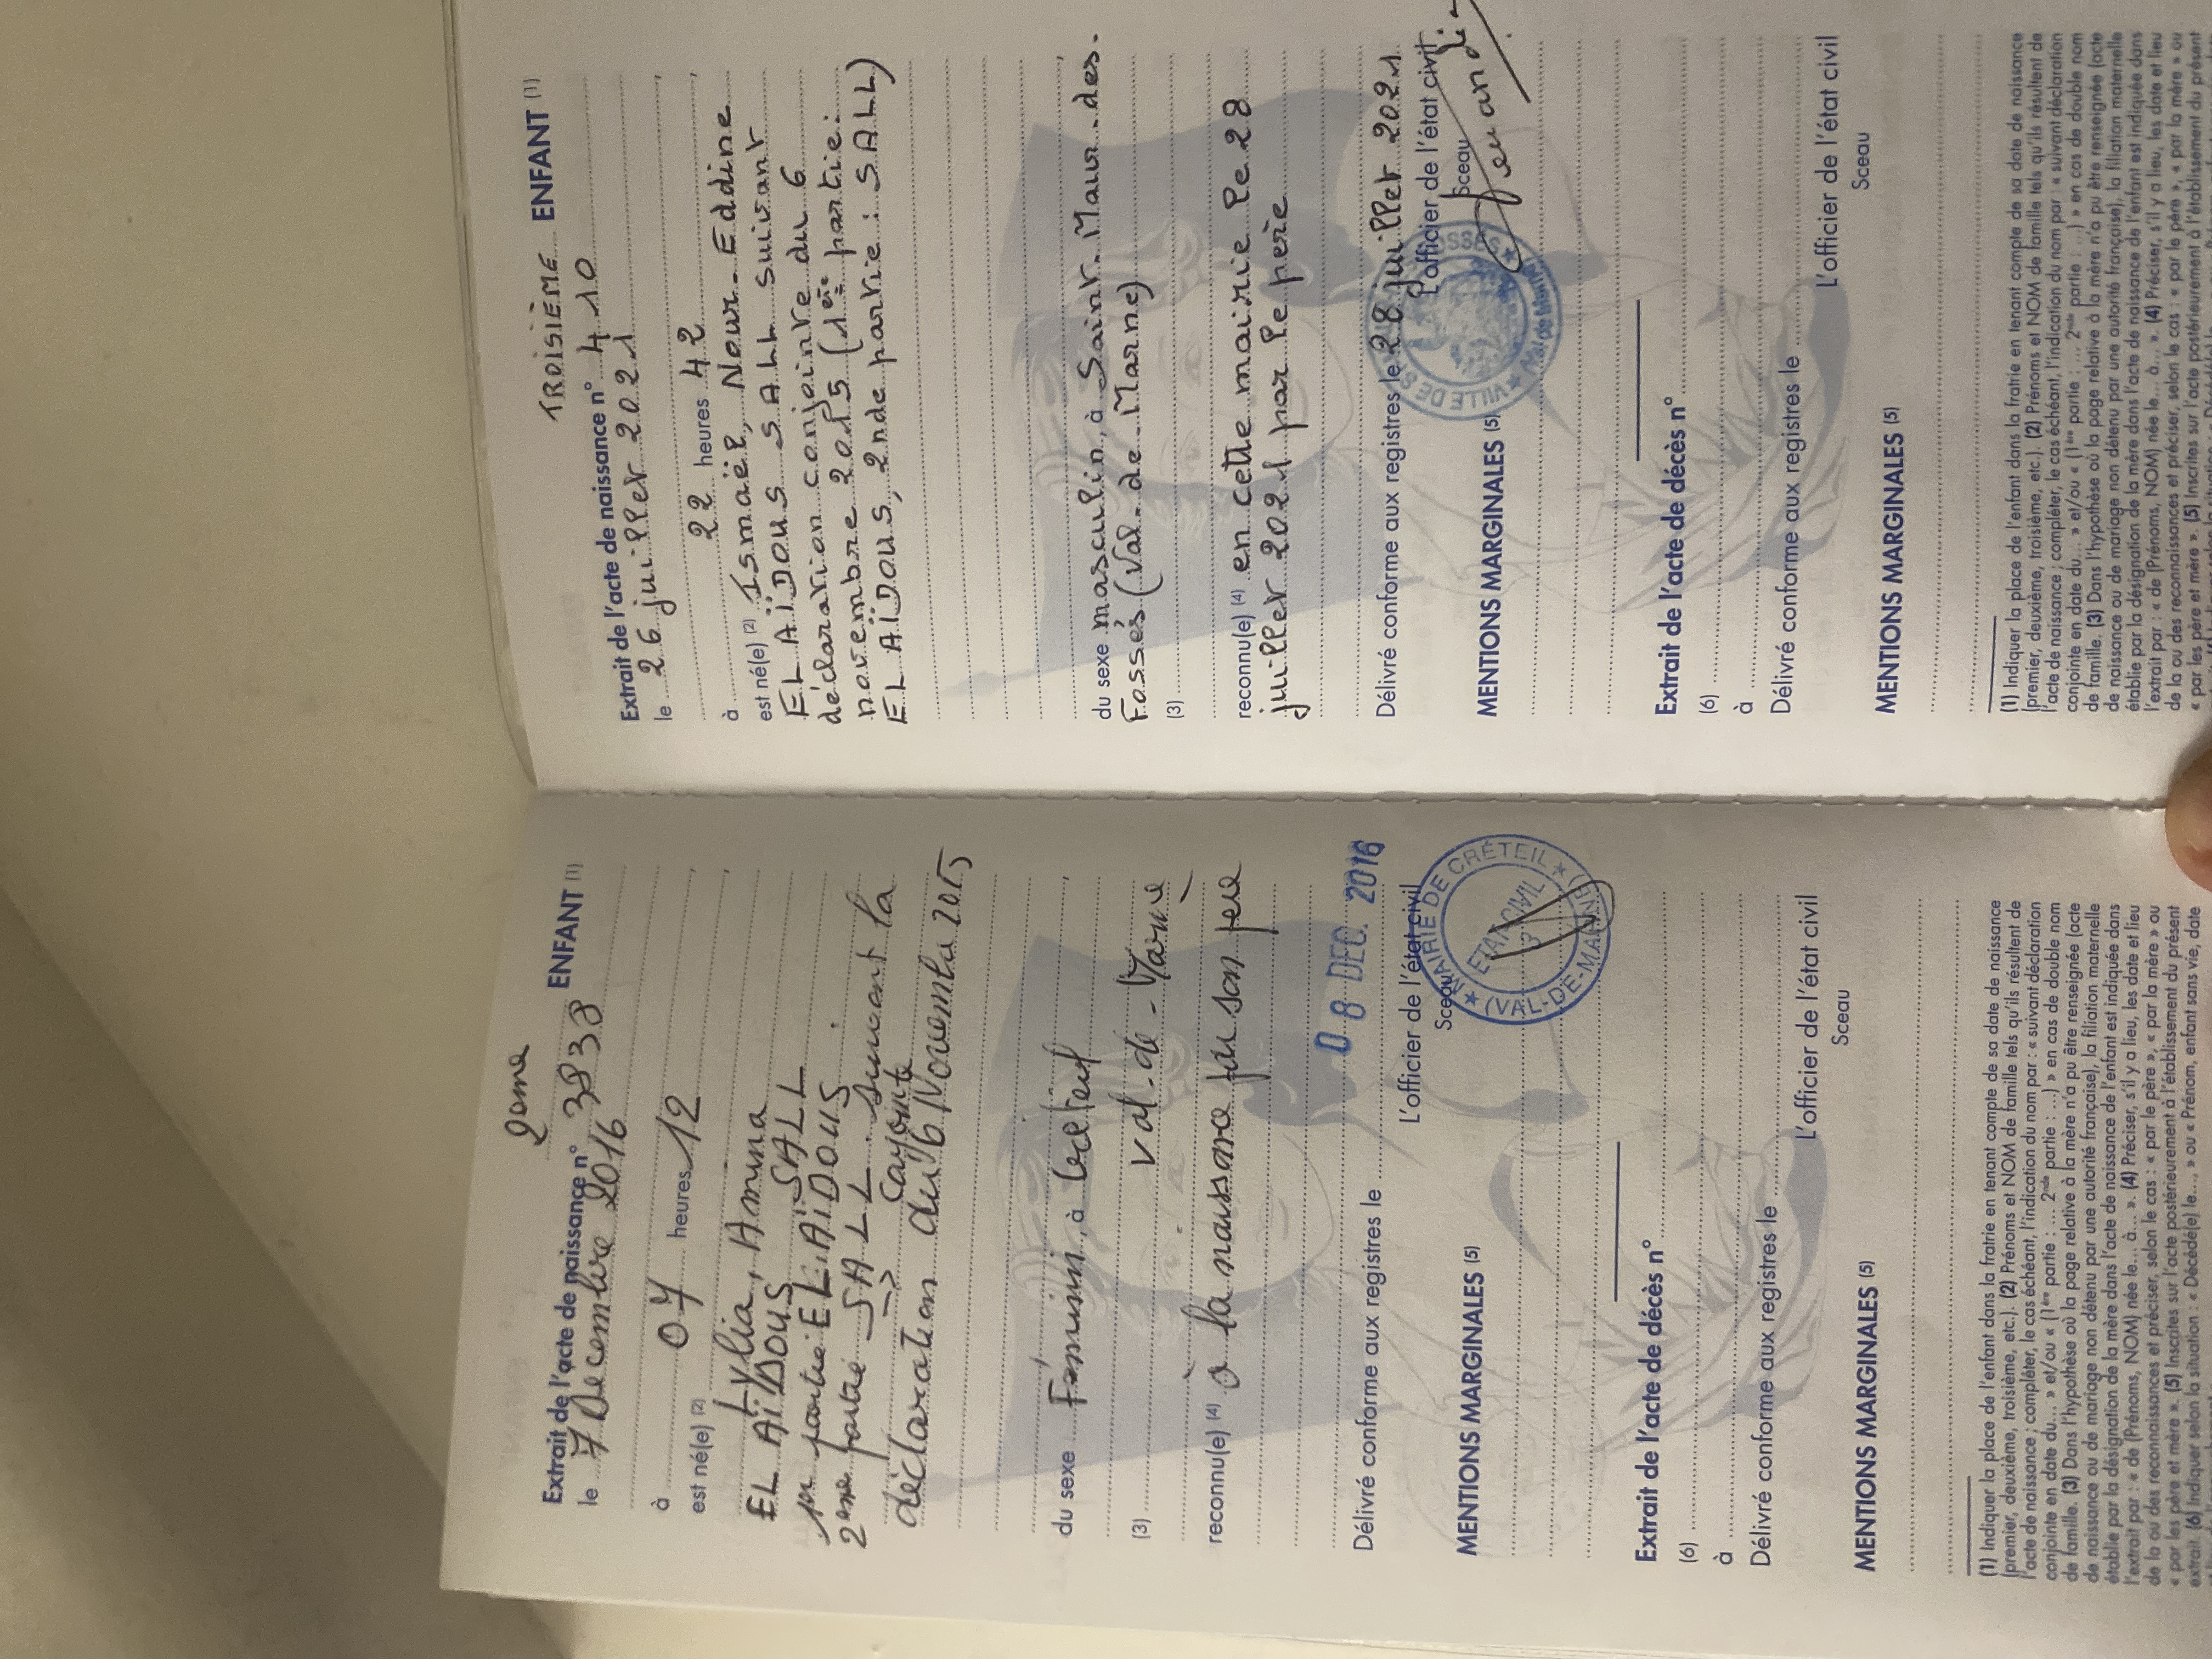 2eme ENFANT (1)
Extrait de l'acte de naissance n° 3838
le 7 Decembre 2016
à 07 heures 12
est né(e) (2) Lylia, Amina
EL AÏDOUS SALL
1er partie EL AÏDOUS
2eme partie SALL suivant la
=> conjointe
déclaration du 6 Novembre 2015
du sexe Féminin, à Créteil
Val-de-Marne
(3)
reconnu(e) (4) à la naissance par son père
Délivré conforme aux registres le 08 DEC. 2016
L'officier de l'état civil
Sceau
MAIRIE DE CRÉTEIL
ETAT CIVIL
(VAL-DE-MARNE)
MENTIONS MARGINALES (5)
Extrait de l'acte de décès n°
(6)
à
Délivré conforme aux registres le
L'officier de l'état civil
Sceau
MENTIONS MARGINALES (5)
(1) Indiquer la place de l'enfant dans la fratrie en tenant compte de sa date de naissance
(premier, deuxième, troisième, etc.). (2) Prénoms et NOM de famille tels qu'ils résultent de
l'acte de naissance ; compléter, le cas échéant, l'indication du nom par : « suivant déclaration
conjointe en date du... » et/ou « (1ère partie : ... 2nde partie : ...) » en cas de double nom
de famille. (3) Dans l'hypothèse où la page relative à la mère n'a pu être renseignée (acte
de naissance ou de mariage non détenu par une autorité française), la filiation maternelle
établie par la désignation de la mère dans l'acte de naissance de l'enfant est indiquée dans
l'extrait par : « de (Prénoms, NOM) née le... à... ». (4) Préciser, s'il y a lieu, les date et lieu
de la ou des reconnaissances et préciser, selon le cas : « par le père », « par la mère » ou
« par les père et mère ». (5) Inscrites sur l'acte postérieurement à l'établissement du présent
extrait. (6) Indiquer selon la situation : « Décédé(e) le..., » ou « Prénom, enfant sans vie, date
TROISIÈME ENFANT (1)
Extrait de l'acte de naissance n° 410
le 26 juillet 2021
à 22 heures 42
est né(e) (2) Ismaël, Nour-Eddine
EL AÏDOUS SALL suivant
déclaration conjointe du 6
novembre 2015 (1ère partie:
EL AÏDOUS, 2nde partie : SALL)
du sexe masculin, à Saint-Maur-des-
Fossés (Val-de-Marne)
(3)
reconnu(e) (4) en cette mairie le 28
juillet 2021 par le père
Délivré conforme aux registres le 28 juillet 2021
L'officier de l'état civil
Sceau
MENTIONS MARGINALES (5)
Extrait de l'acte de décès n°
(6)
à
Délivré conforme aux registres le
L'officier de l'état civil
Sceau
MENTIONS MARGINALES (5)
(1) Indiquer la place de l'enfant dans la fratrie en tenant compte de sa date de naissance
(premier, deuxième, troisième, etc.). (2) Prénoms et NOM de famille tels qu'ils résultent de
l'acte de naissance ; compléter, le cas échéant, l'indication du nom par : « suivant déclaration
conjointe en date du... » et/ou « (1ère partie : ... 2nde partie : ...) » en cas de double nom
de famille. (3) Dans l'hypothèse où la page relative à la mère n'a pu être renseignée (acte
de naissance ou de mariage non détenu par une autorité française), la filiation maternelle
établie par la désignation de la mère dans l'acte de naissance de l'enfant est indiquée dans
l'extrait par : « de (Prénoms, NOM) née le... à... ». (4) Préciser, s'il y a lieu, les date et lieu
de la ou des reconnaissances et préciser, selon le cas : « par le père », « par la mère » ou
« par les père et mère ». (5) Inscrites sur l'acte postérieurement à l'établissement du présent